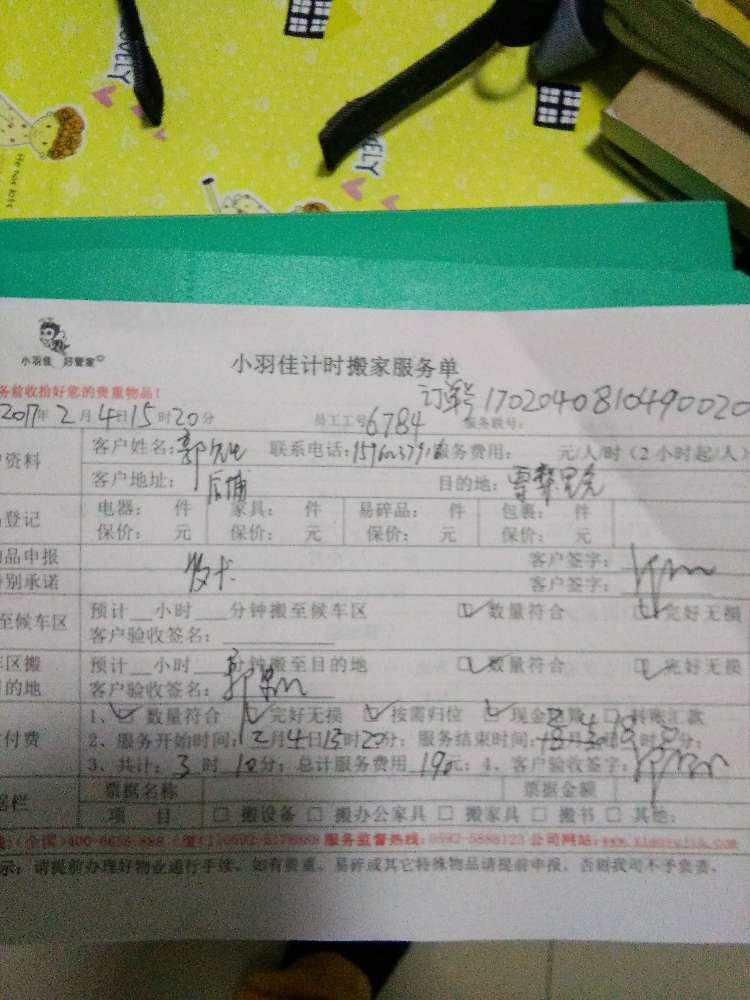 LOVELY
LOVELY
小羽佳 好管家
小羽佳计时搬家服务单
务前收拾好您的贵重物品!
订单号 170204081049002
2017年2月4日15时20分 员工工号6784 服务联号:
户资料 客户姓名:郭先生 联系电话: 服务费用: 元/人/时(2小时起/人)
客户地址:后埔 目的地:
登记 电器: 件 家具: 件 易碎品: 件 包裹: 件
保价: 元 保价: 元 保价: 元 保价: 元
物品申报 客户签字:
特别承诺 客户签字:
至候车区 预计__小时___分钟搬至候车区 ☑数量符合 ☑完好无损
客户验收签名:
车区搬 预计__小时___分钟搬至目的地 ☑数量符合 ☑完好无损
目的地 客户验收签名:
付费 1、☑数量符合 ☑完好无损 ☑按需归位 ☑现金 □转账汇款
2、服务开始时间:2月4日15时20分;服务结束时间:
3、共计:3时10分;总计服务费用190元;4、客户验收签字:
据栏 票据名称 票据金额
项 目 □搬设备 □搬办公家具 □搬家具 □搬书 □其他:
(全国)400-6656-888 服务监督热线:0592-5888123 公司网站:www.xiaoyujia.com
示:请提前办理好物业通行手续。如有贵重、易碎或其它特殊物品请提前申报。否则我司不予负责。